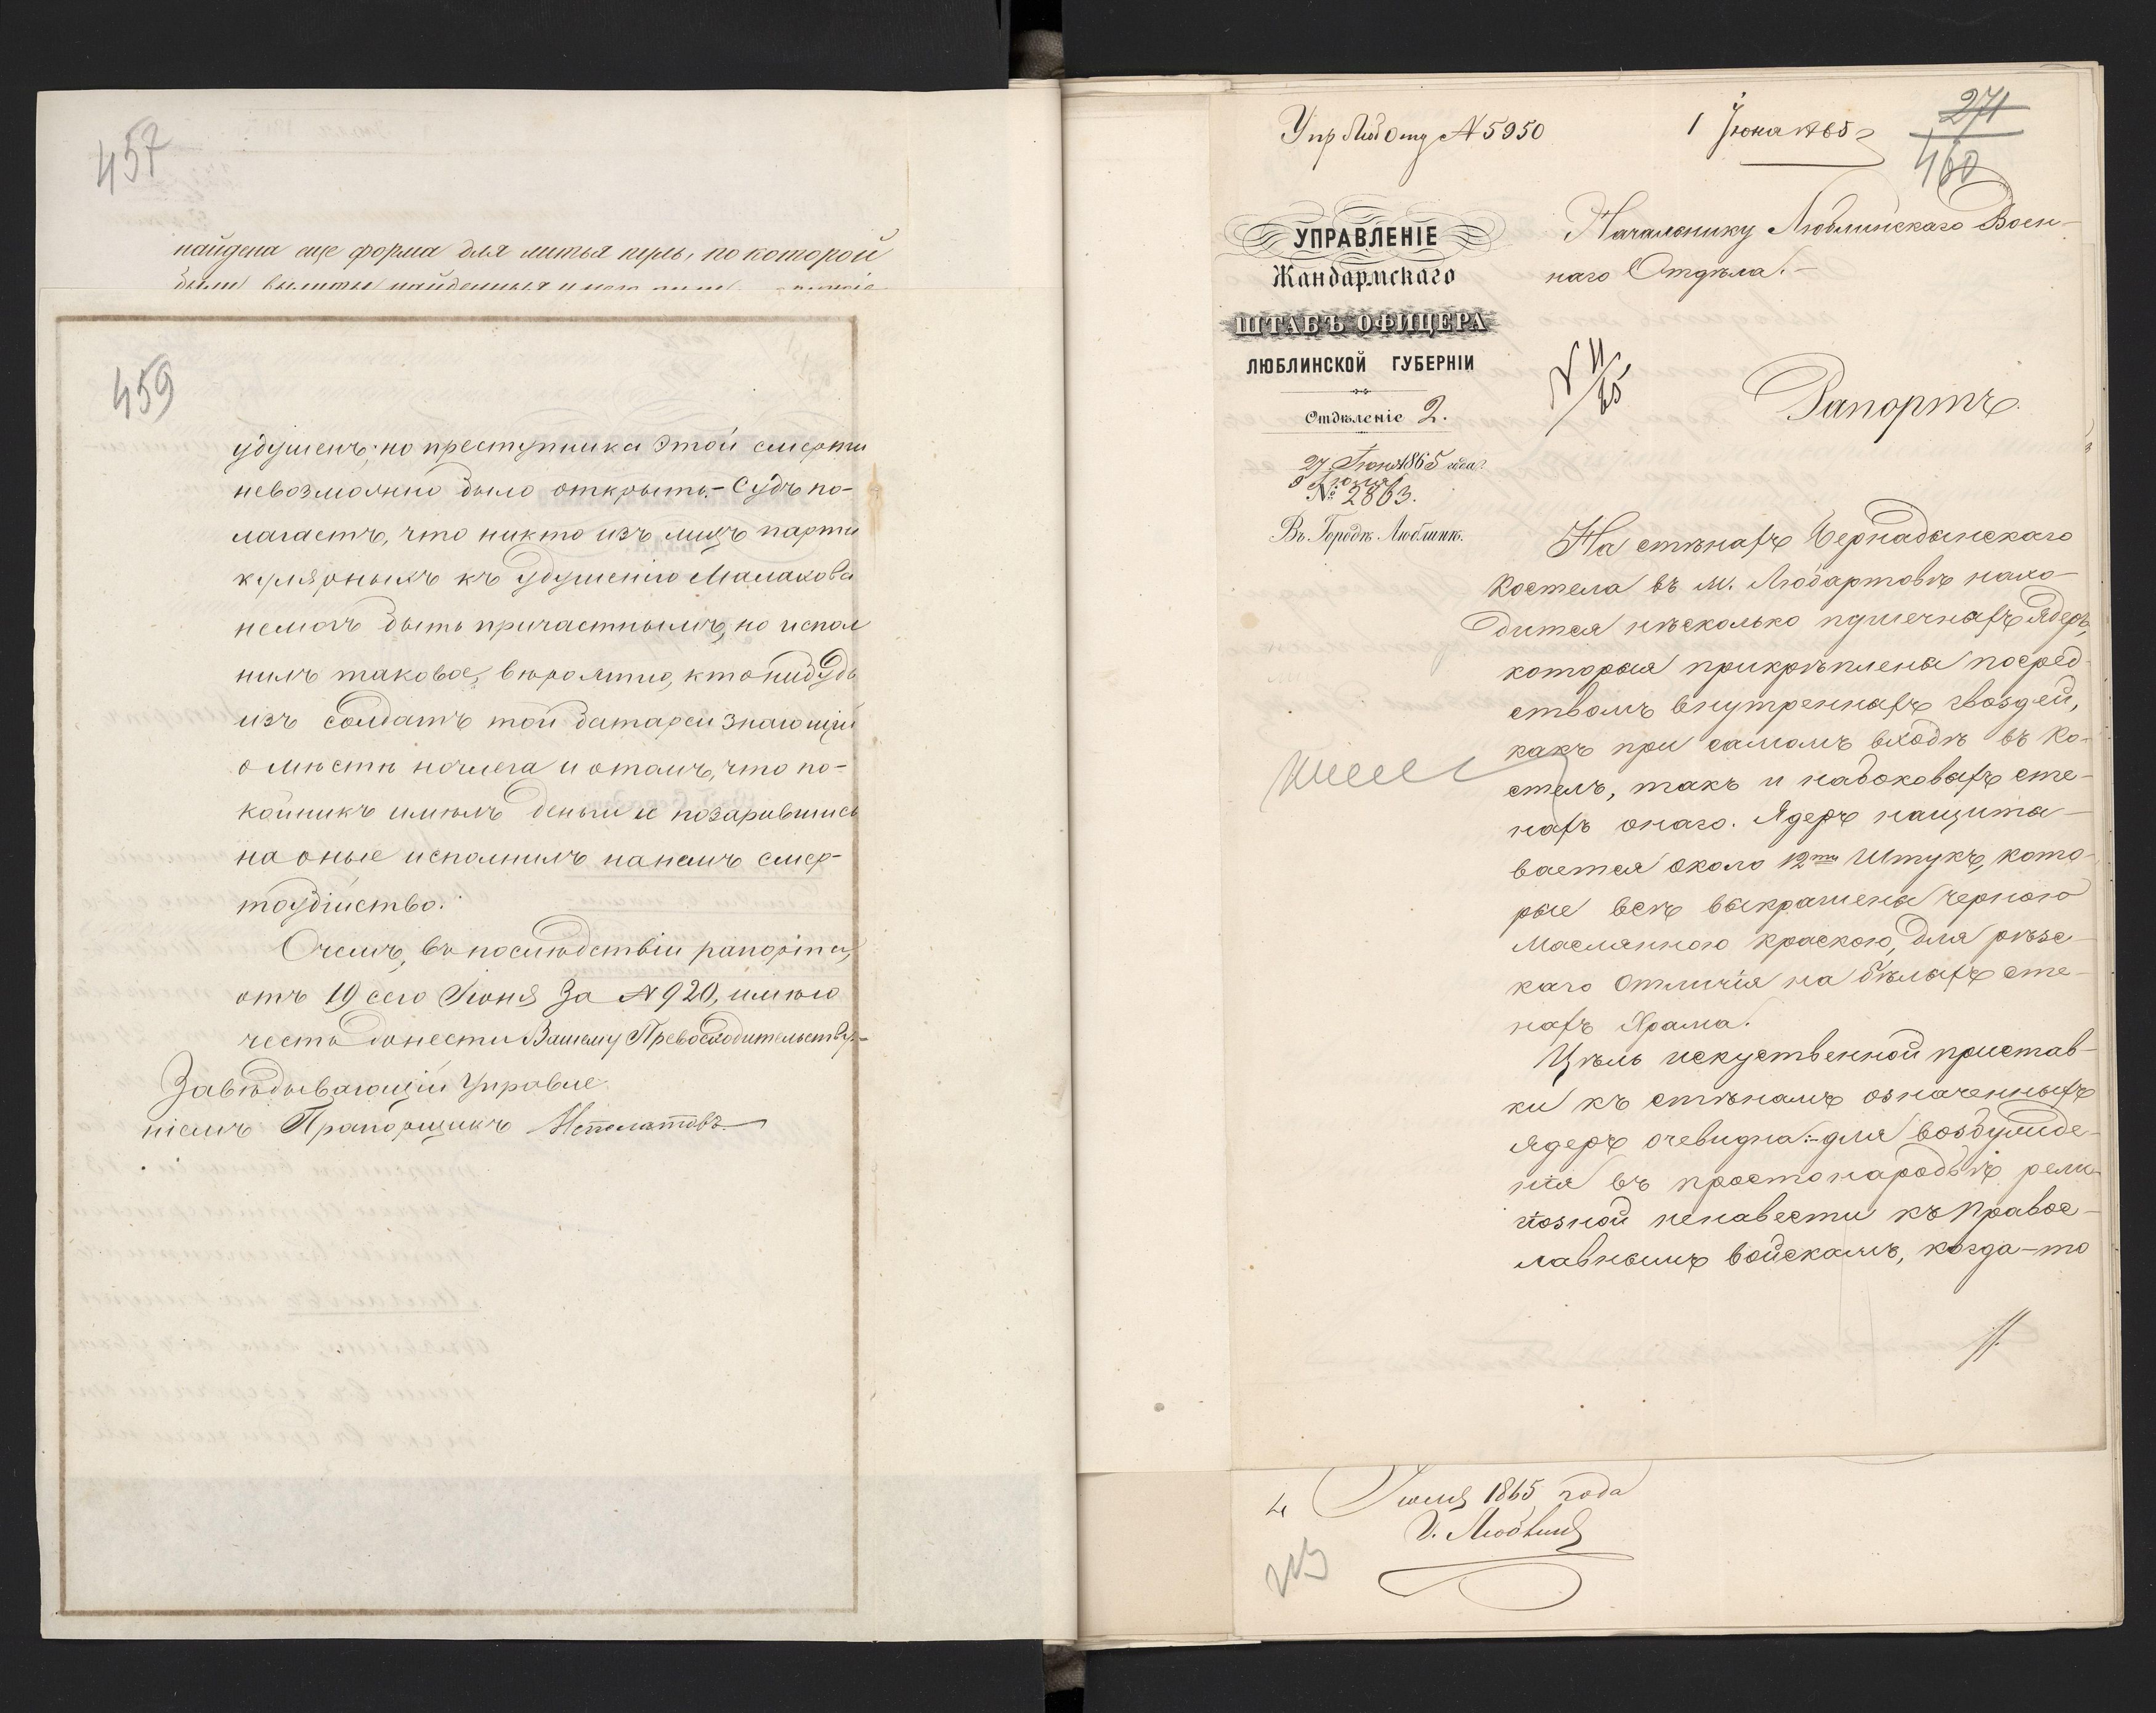 457
найдена еще форма для литья пуль, по которой
были вылиты найденныя
459
удушенъ; но преступника этой смерти
невозможно было открыть.– Судъ по-
лагаетъ, что никто изъ лицъ парти
кулярныхъ къ удушенію Малахова
немогъ быть причастнымъ, но испол
нилъ таковое, вѣроятно, кто нибудь
изъ солдатъ той батареи знающій
о мѣстѣ ночлега и о томъ, что по-
койникъ имѣлъ деньги и позарившись
на оные исполнилъ на немъ смер-
тоубійство.
Очемъ, въ послѣдствіи рапорта,
отъ 19 сего Іюня за № 920, имѣю
честь донести Вашему Превосходительству.–
Завѣдывающій Управле
ніемъ Прапорщикъ
Упр Люб Отд № 5950
1 Іюня 1865 г
271
460
УПРАВЛЕНІЕ
Жандармскаго
ШТАБЪ ОФИЦЕРА
ЛЮБЛИНСКОЙ ГУБЕРНІИ
Отдѣленіе 2.
27 Іюня 1865 года
9 Іюля
№ 2863.
Въ Городѣ Люблинѣ.
Начальнику Люблинскаго Воен-
наго Отдѣла.–
Рапортъ.
На стѣнахъ Бернадынскаго
Костела въ м. Любартовѣ нахо-
дится нѣсколько пушечныхъ Ядеръ,
которыя прикрѣплены посред-
ствомъ внутреннихъ гвоздей,
какъ при самомъ входѣ въ Ко-
стелъ, такъ и набоковыхъ сте-
нахъ онаго. Ядеръ нащиты-
вается около 12ти Штукъ, кото-
рые всѣ выкрашены черною
Маслянною краскою, для рѣзс-
каго Отличія на бѣлыхъ сте-
нахъ Храма.
Цѣль искуственной пристав-
ки къ стѣнамъ означенныхъ
ядеръ очевидна:– для возбужде-
нія въ простонародьѣ рели-
гіозной ненавести къ Правос-
лавнымъ войскамъ, когда-то
4 Іюля 1865 года
Г. Люблинъ